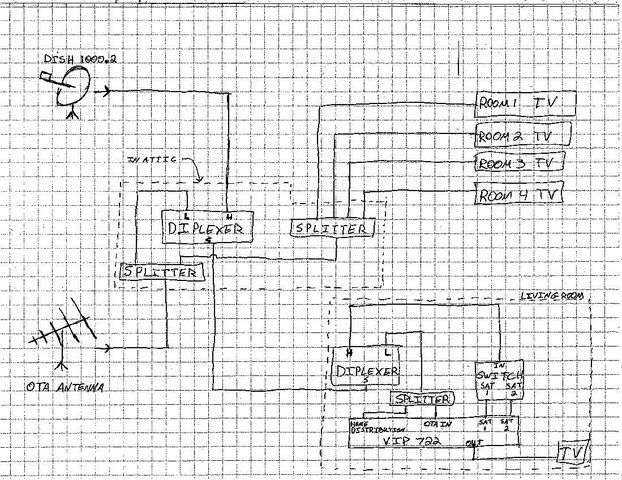 DISH 1000.2
ROOM 1 TV
ROOM 2 TV
ROOM 3 TV
ROOM 4 TV
IN ATTIC
L H
DIPLEXER
S
SPLITTER
SPLITTER
OTA ANTENNA
LIVING ROOM
H L
DIPLEXER
S
IN
SWITCH
SAT SAT
1 2
SPLITTER
HOME
DISTRIBUTION
OTA IN
SAT SAT
1 2
VIP 722
OUT
TV